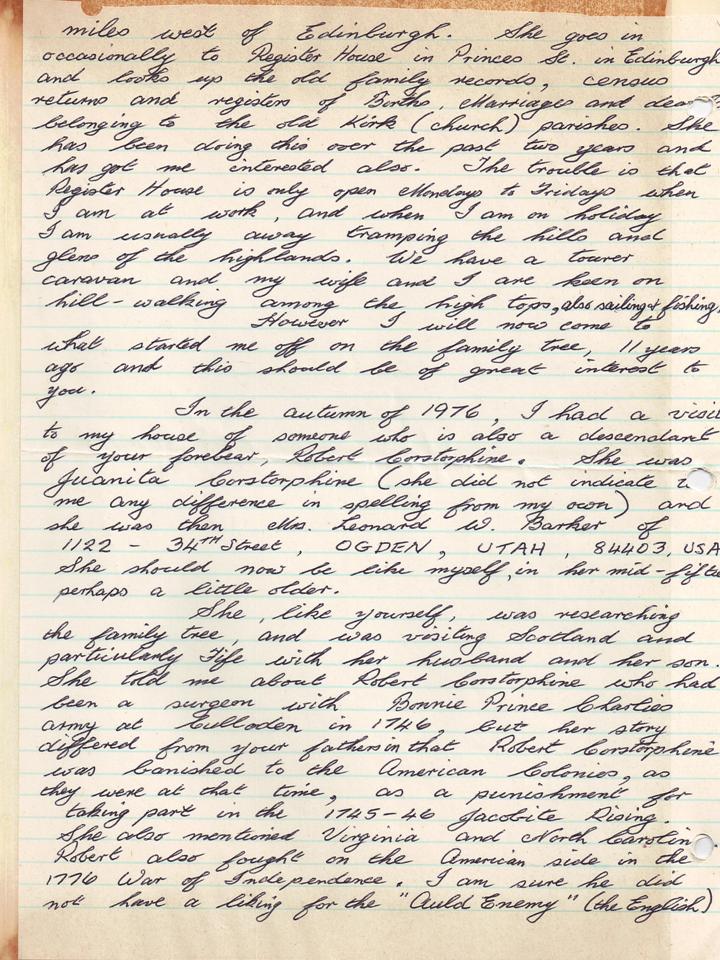 miles west of Edinburgh. She goes in
occasionally to Register House in Princes St. in Edinburgh
and looks up the old family records, census
returns and registers of Births, Marriages and
belonging to the old Kirk (church) parishes. She
has been doing this over the past two years and
has got me interested also. The trouble is that
Register House is only open Mondays to Fridays when
I am at work, and when I am on holiday
I am usually away tramping the hills and
glens of the highlands. We have a tourer
caravan and my wife and I are keen on
hill-walking among the high tops, also sailing & fishing.
However I will now come to
what started me off on the family tree, 11 years
ago and this should be of great interest to
you.
In the autumn of 1976, I had a visit
to my house of someone who is also a descendant
of your forebear, Robert Corstorphine. She was
Juanita Corstorphine (she did not indicate
me any difference in spelling from my own) and
she was then Mrs. Leonard W. Barker of
1122 - 34TH Street, OGDEN, UTAH, 84403, USA
She should now be like myself, in her mid-fifties
perhaps a little older.
She, like yourself, was researching
the family tree, and was visiting Scotland and
particularly Fife with her husband and her son.
She told me about Robert Corstorphine who had
been a surgeon with Bonnie Prince Charlies
army at Culloden in 1746, but her story
differed from your fathers in that Robert Corstorphine
was banished to the American Colonies, as
they were at that time, as a punishment for
taking part in the 1745-46 Jacobite Rising.
She also mentioned Virginia and North Carolin
Robert also fought on the American side in the
1776 War of Independence. I am sure he did
not have a liking for the "Auld Enemy" (the English)